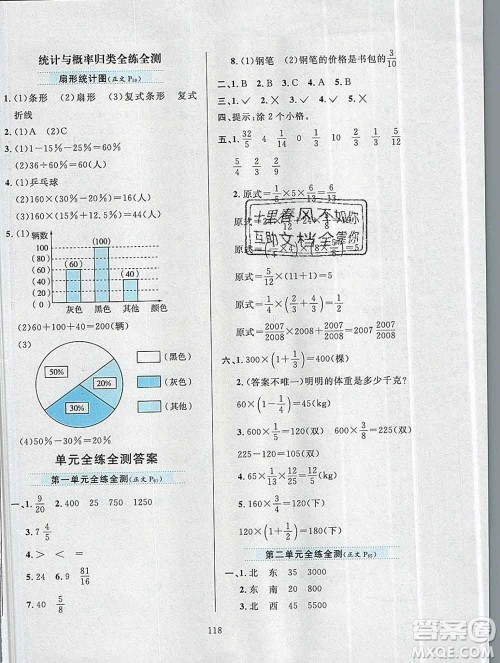 统计与概率归类全练全测
扇形统计图(正文P₅₉)
1.(1)条形 (2)扇形 (3)复式条形 复式
折线
2.(1)A (2)C
3.(1)1－15%－25%＝60%
(2)36÷60%＝60(人)
4.(1)乒乓球
(2)60×30%×20%＝(人)
5.(1) 数量(辆)
100
90
80
70
60
50
40
30
20
10
0
(60)
(100)
(40)
灰色 黑色 其他 颜色
(2)60＋100＋40＝200(辆)
(3)
50%
20%
30%
(黑色)
(灰色)
(其他)
(4)50%－20%＝30%
单元全练全测答案
第一单元全练全测(正文P₆₃)
一、1. 9/20 2.400 25 750 1250
3.7 4/5
4.＞ ＜ ＝
5.24 0.9 6. 81/16
7.40 5/8
8.(1)钢笔 (2)钢笔的价格是书包的3/10
二、1.B 2.A 3.A 4.B 5.C
三、1.✓ 2.✓ 3.× 4.✓ 5.✓
四、提示:涂2个小格。
五、32/5 4/5 1/4 0 1/10 30 1/2
3/2 2/9 3/4 5/6
原式＝1/6×5×6/11＝5/11
十里春风不如你
互助文档全靠你
原式＝2/3×(1/2＋3/2)＝4/3
原式＝2007/2008×2008＋2007/2008＝2007 2007/2008
六、1.300×(1＋1/3)＝400(棵)
2.(答案不唯一)明明的体重是多少千克?
60×(1－1/4)＝45(kg)
3.600×1/5＝120(双) 600×3/8＝225(双)
4.65×1/13×6/5＝6(kg)
5.120×(1＋4/5)＝216(下)
160×(1－1/4)＝120(下)
第二单元全练全测(正文P₆₅)
一、1.北 东 35 3000
2.东 南 50 4000
3.北 西 45 5000
118
答案圈
MXQE.COM